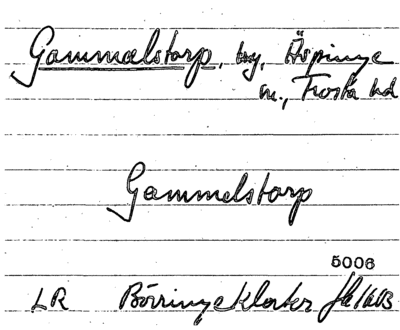 Gammalstorp, by, Äspinge
sn., Frosta hd
Gammelstorp
5006
LR Börringekloster